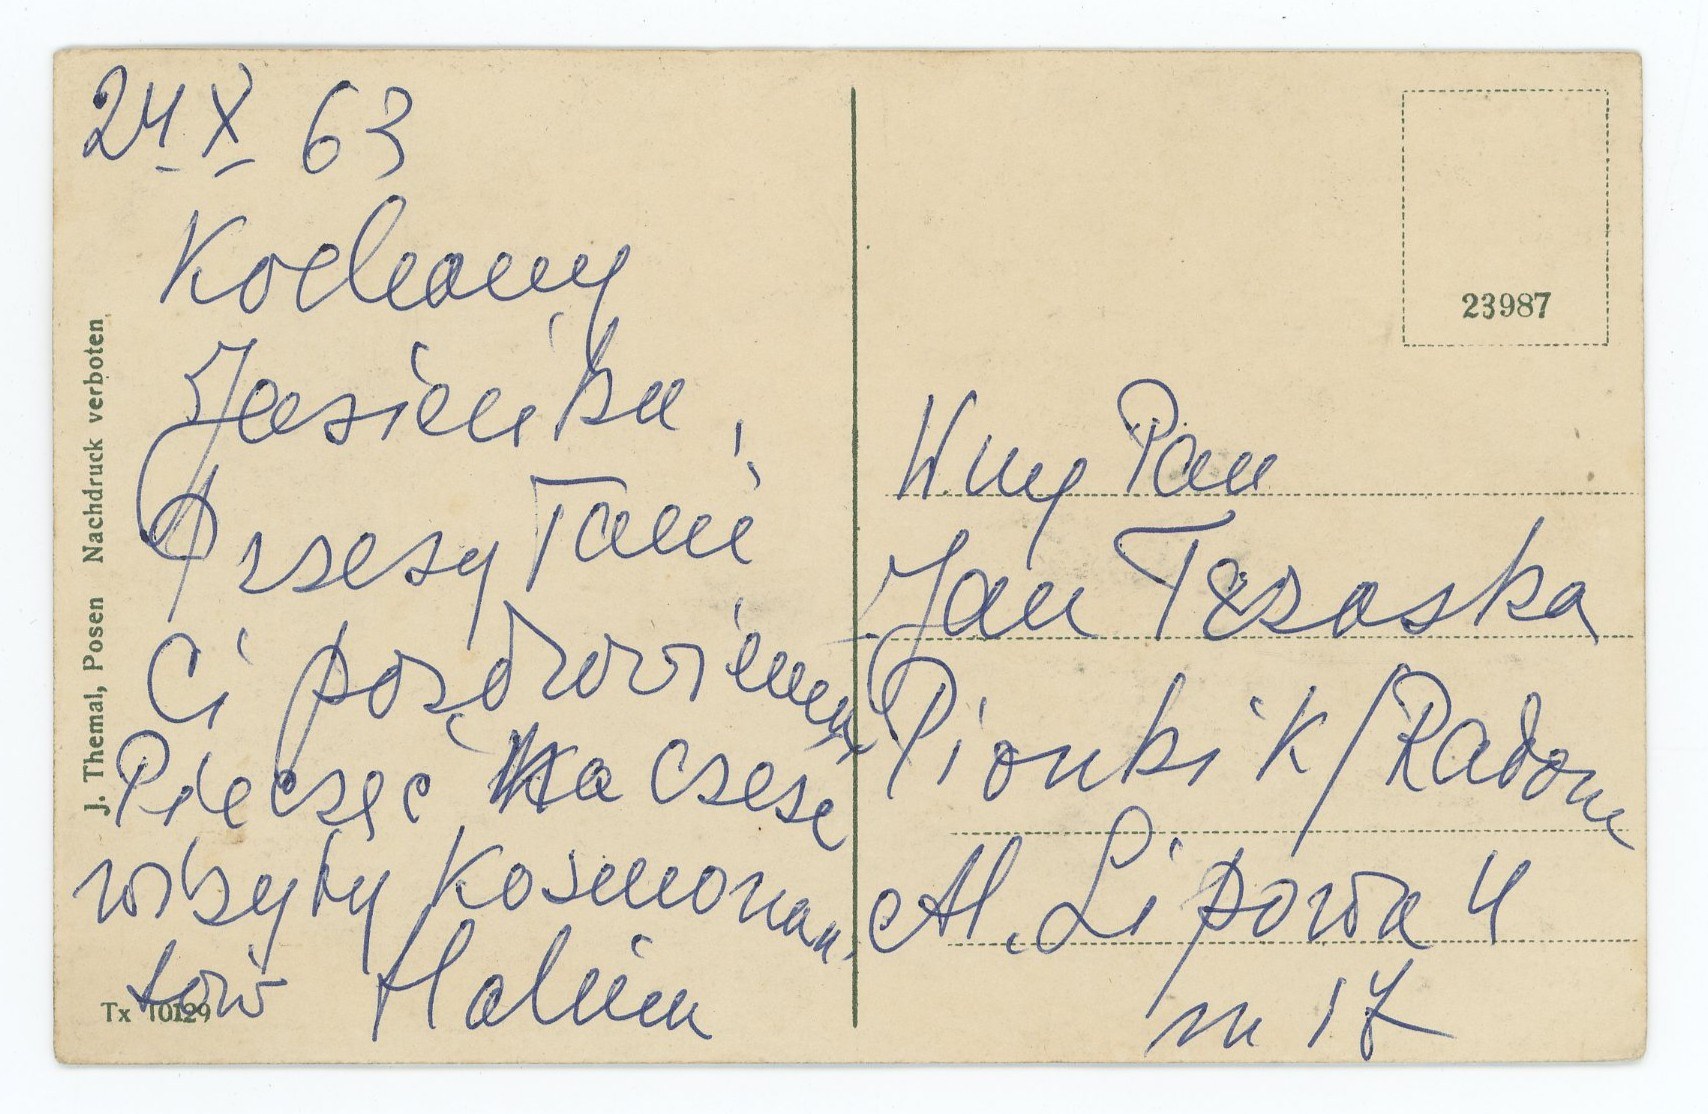 24 X 63
Kochany
Jasieńku,
Przesyłam
Ci pozdrowienia
Pieczęć na cześć
wizyty Kosmonau
tów Halina
J. Themal, Posen Nachdruck verboten
Tx 10129
23987
Wny Pan
Jan
Pionki K/Radom
Al. Lipowa 4
m 17